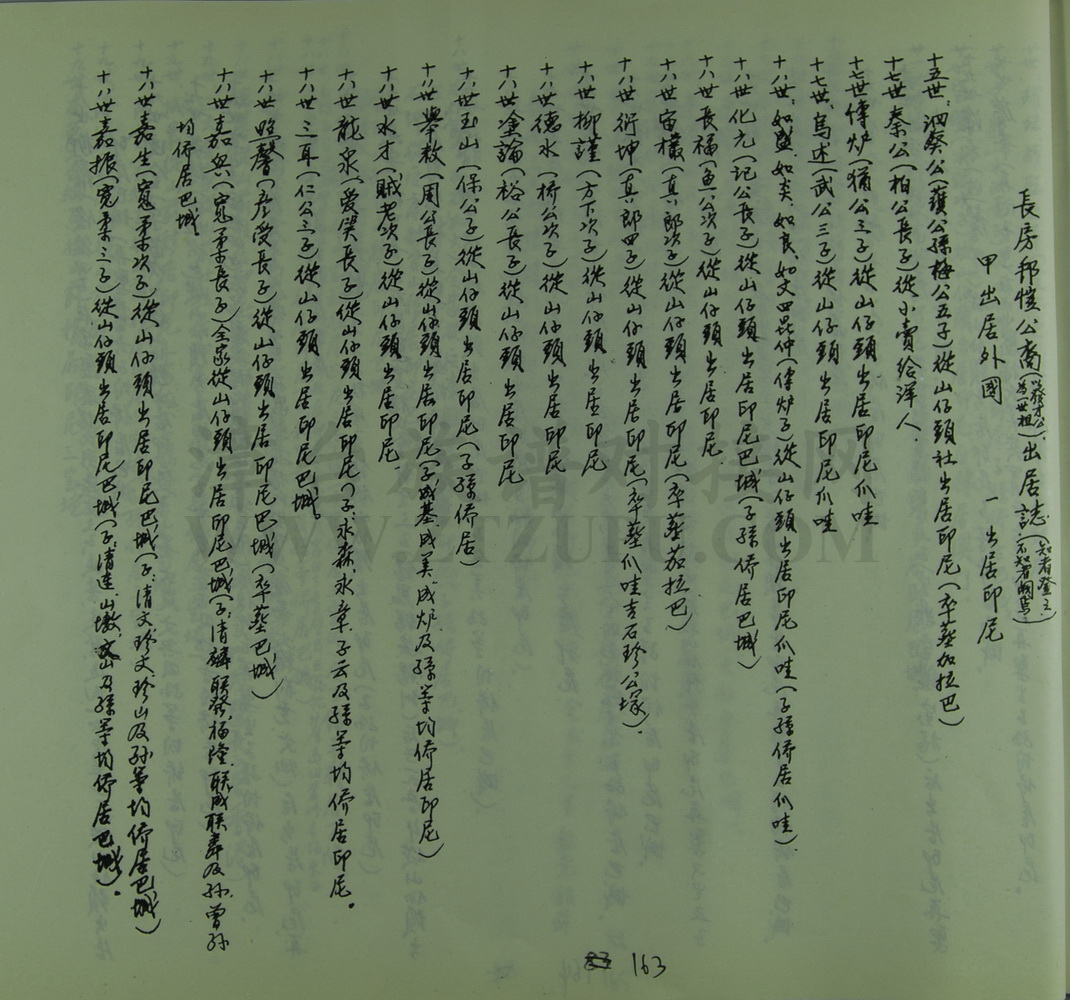 長房邦愷公裔(以發才公為一世祖)出居誌(知者登之不知者闕焉)
甲出居外國 一 出居印尼
十五世 泗葵公(護公孫梅公五子)從山仔頭社出居印尼(卒葬加拉巴)
十七世 秦公(柏公長子)從小賣給洋人
十七世 傳炉(猶公三子)從山仔頭出居印尼爪哇
十七世 烏述(武公三子)從山仔頭出居印尼爪哇
十八世 如盛 如炎 如良 如文四昆仲(傳炉子)從山仔頭出居印尼爪哇(子孫侨居爪哇)
十八世 化元(記公長子)從山仔頭出居印尼巴城(子孫侨居巴城)
十八世 長福(魚公次子)從山仔頭出居印尼
十八世 宙欉(真郎次子)從山仔頭出居印尼(卒葬茄拉巴)
十八世 衍坤(真郎四子)從山仔頭出居印尼(卒葬爪哇吉石珍公塚)
十八世 柳謹(方下次子)從山仔頭出居印尼
十八世 德水(桥公次子)從山仔頭出居印尼
十八世 淦論(裕公長子)從山仔頭出居印尼
十八世 玉山(保公子)從山仔頭出居印尼(子孫侨居)
十八世 舉敕(周公長子)從山仔頭出居印尼(子成基 成美 成炉及孫等均侨居印尼)
十八世 水才(賊老次子)從山仔頭出居印尼
十八世 龍泉(愛笑長子)從山仔頭出居印尼(子:永森 永章 子云及孫等均侨居印尼。
十八世 三耳(仁公三子)從山仔頭出居印尼巴城。
十八世 照馨(彥受長子)從山仔頭出居印尼巴城(卒葬巴城)
十八世 嘉與(寬柔長子)全家從山仔頭出居印尼巴城(子:清麟 联發 福隆 联成 联壽及孙 曾孙
均侨居巴城
十八世 嘉生(寬柔次子)從山仔頭出居印尼巴城(子:清文 珍文 珍山及孙等均侨居巴城)
十八世 嘉振(寬柔三子)從山仔頭出居印尼巴城(子:清連 山墩 山及孫等均侨居巴城)。
163
WWW.ZTZUPU.COM